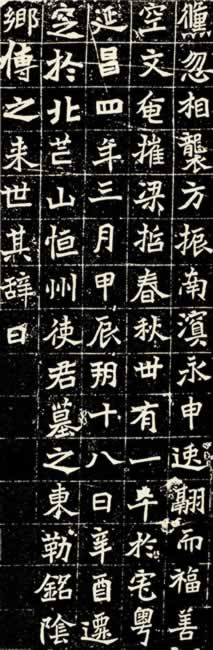 儵忽相襲方振南溟永申速翮而福善
空文奄摧梁哲春秋丗有一卒於宅粵
延昌四年三月甲辰朔十八日辛酉遷
窆於北芒山恒州使君墓之東勒銘陰
鄉傳之来世其辭曰